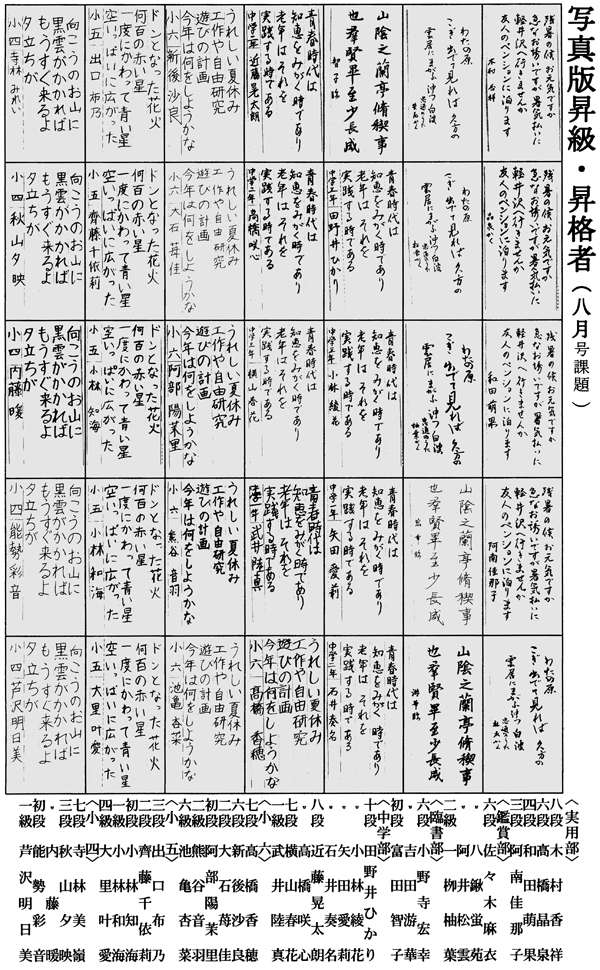 写真版昇級・昇格者（八月号課題）
残暑の候、お元気ですか
急なお誘いですが暑気払いに
軽井沢へ行きませんか
友人のペンションに泊ります
木村香祥
わたの原
こぎ出でて見れば久方の
雲居にまがふ沖つ白波
山陰之蘭亭脩禊事
也羣賢畢至少長咸
智子臨
青春時代は
知恵をみがく時であり
老年はそれを
実践する時である
中学二年 近藤晃太朗
うれしい夏休み
工作や自由研究
遊びの計画
今年は何をしようかな
小六 新後沙良
ドンとなった花火
何百の赤い星
一度にかわって青い星
空いっぱいに広がった
小五 出口布乃
向こうのお山に
黒雲がかかれば
もうすぐ来るよ
夕立ちが
小四 寺林みれい
残暑の候、お元気ですか
急なお誘いですが暑気払いに
軽井沢へ行きませんか
友人のペンションに泊ります
わたの原
こぎ出でて見れば久方の
雲居にまがふ沖つ白波
青春時代は
知恵をみがく時であり
老年はそれを
実践する時である
中学二年 田野井ひかり
青春時代は
知恵をみがく時であり
老年はそれを
実践する時である
中学二年 高橋咲心
うれしい夏休み
工作や自由研究
遊びの計画
今年は何をしようかな
小六 大石苺佳
ドンとなった花火
何百の赤い星
一度にかわって青い星
空いっぱいに広がった
小五 齊藤千依莉
向こうのお山に
黒雲がかかれば
もうすぐ来るよ
夕立ちが
小四 秋山夕映
残暑の候、お元気ですか
急なお誘いですが暑気払いに
軽井沢へ行きませんか
友人のペンションに泊ります
和田萌果
わたの原
こぎ出でて見れば久方の
雲居にまがふ沖つ白波
青春時代は
知恵をみがく時であり
老年はそれを
実践する時である
小林綾花
青春時代は
知恵をみがく時であり
老年はそれを
実践する時である
横山春花
うれしい夏休み
工作や自由研究
遊びの計画
今年は何をしようかな
小六 阿部陽茉里
ドンとなった花火
何百の赤い星
一度にかわって青い星
空いっぱいに広がった
小五 小林知海
向こうのお山に
黒雲がかかれば
もうすぐ来るよ
夕立ちが
小四 内藤暖
残暑の候、お元気ですか
急なお誘いですが暑気払いに
軽井沢へ行きませんか
友人のペンションに泊ります
阿南佳那子
山陰之蘭亭脩禊事
也羣賢畢至少長咸
青春時代は
知恵をみがく時であり
老年はそれを
実践する時である
矢田愛莉
青春時代は
知恵をみがく時であり
老年はそれを
実践する時である
武井陸真
うれしい夏休み
工作や自由研究
遊びの計画
今年は何をしようかな
小六 熊谷音羽
ドンとなった花火
何百の赤い星
一度にかわって青い星
空いっぱいに広がった
小五 小林和海
向こうのお山に
黒雲がかかれば
もうすぐ来るよ
夕立ちが
小四 能勢彩音
わたの原
こぎ出でて見れば久方の
雲居にまがふ沖つ白波
山陰之蘭亭脩禊事
也羣賢畢至少長咸
青春時代は
知恵をみがく時であり
老年はそれを
実践する時である
石井奏名
うれしい夏休み
工作や自由研究
遊びの計画
今年は何をしようかな
小六 高橋香穂
うれしい夏休み
工作や自由研究
遊びの計画
今年は何をしようかな
小六 池亀杏菜
ドンとなった花火
何百の赤い星
一度にかわって青い星
空いっぱいに広がった
小五 大里叶愛
向こうのお山に
黒雲がかかれば
もうすぐ来るよ
夕立ちが
小四 芦沢明日美
〈実用部〉
八段 木村香祥
六段 高橋晶泉
四段 和田萌果
三段 阿南佳那子
〈鑑賞部〉
六段 佐々木麻衣
二級 栁柚葉
〈臨書部〉
六段 小野寺宏幸
初段 富田智子
〈中学部〉
十段 田野井ひかり
〃 小林綾花
〃 矢田愛莉
〃 石井奏名
八段 近藤晃太朗
〃 高橋咲心
七段 横山春花
一級 武井陸真
〈小六〉
七段 高橋香穂
六段 新後沙良
二段 大石苺佳
初段 阿部陽茉里
二級 熊谷音羽
一級 池亀杏菜
〈小五〉
三段 出口布乃
二段 齊藤千依莉
初段 小林知海
四級 小林和海
一級 大里叶愛
〈小四〉
七段 寺林美嶺
三段 秋山夕映
〃 内藤暖
初段 能勢彩音
一級 芦沢明日美